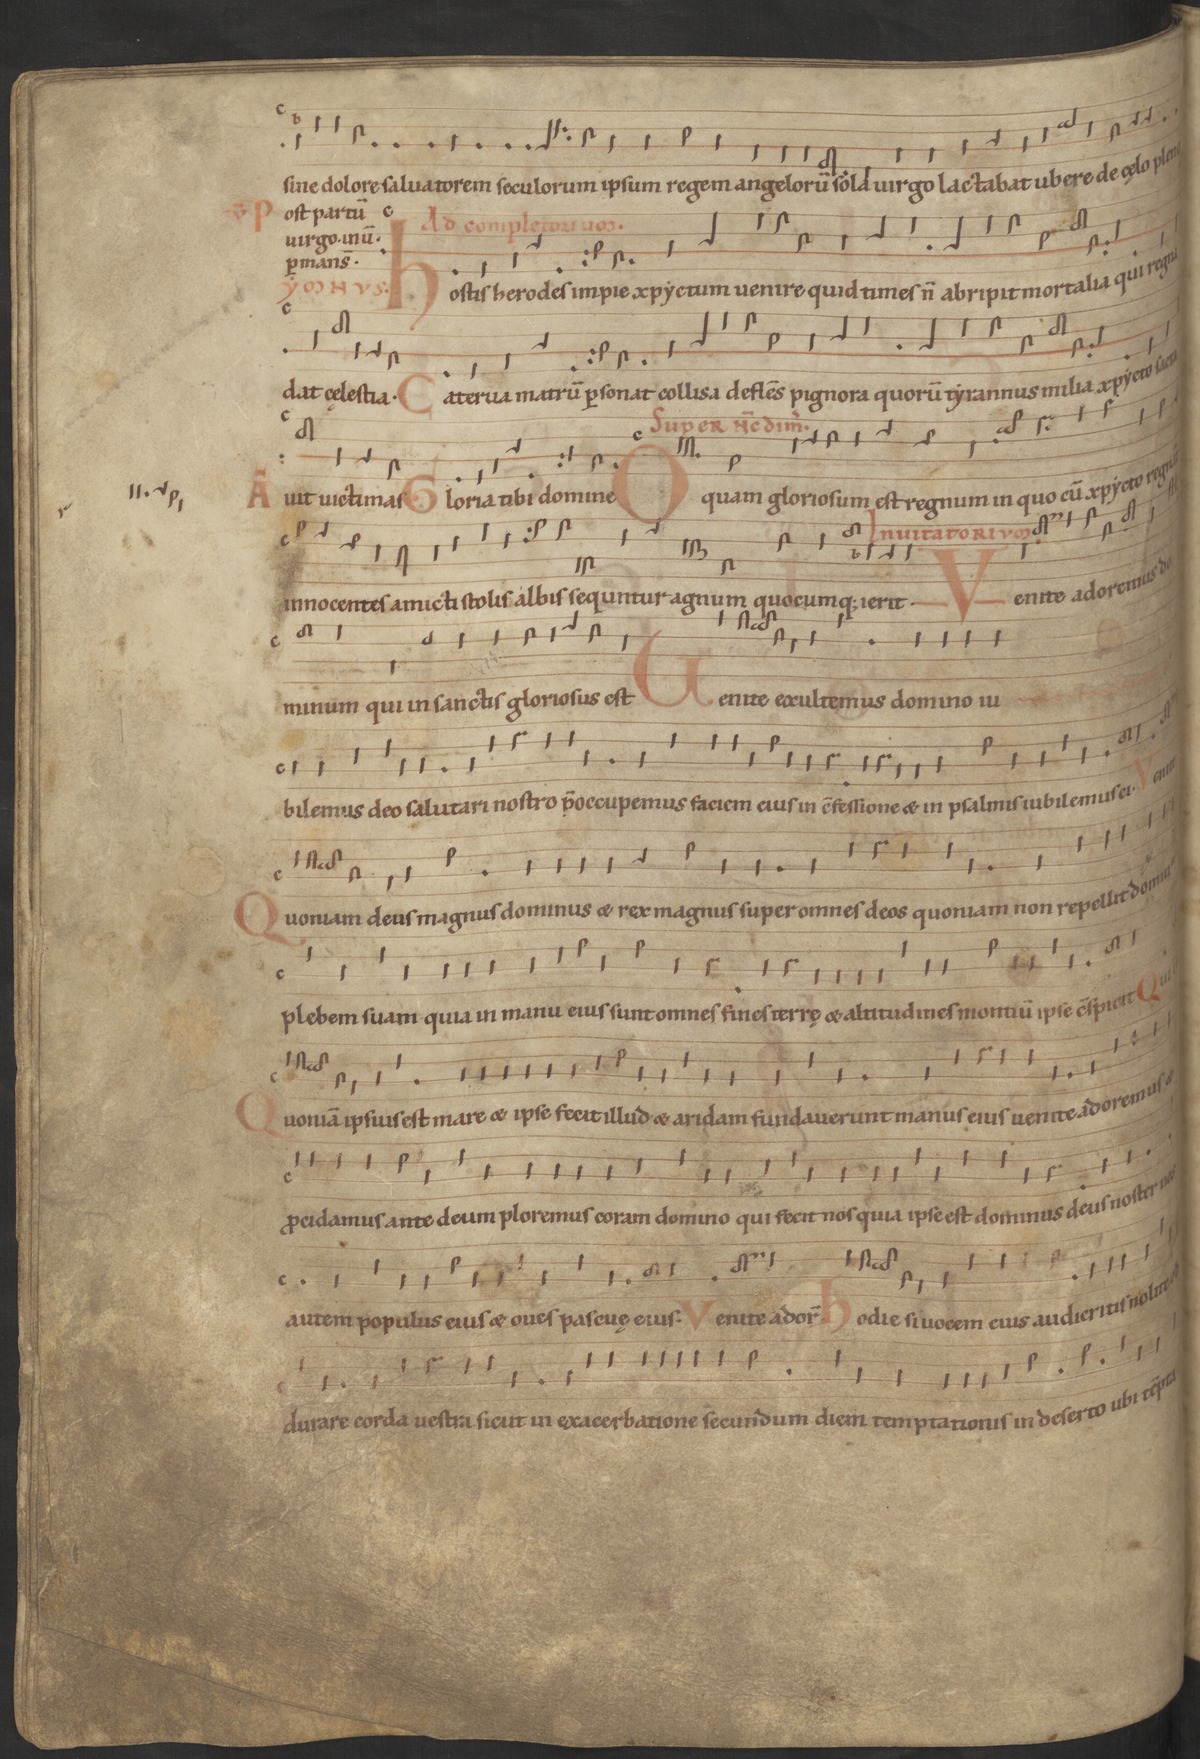 sine dolore saluatorem seculorum ipsum regem angelorū sola uirgo lactabat ubere de cęlo pleno
℣ Post partū
uirgo. inū.
ꝑmans̄.
Ad completorium.
ymnus.
Hostis herodes impie xpyctum uenire quid times n̄ abripit mortalia qui regna
dat cęlestia. Caterua matrū ꝑsonat collisa deflēs pignora quorū tyrannus milia xpycto sacra
Super N̄c dim̄.
uit uictimas Gloria tibi domine O quam gloriosum est regnum in quo cū xpycto regnāt
Ā
Inuitatorium
innocentes amicti stolis albis sequntur agnum quocumq; ierit. Venite adoremus do
minum qui in sanctis gloriosus est Uenite exultemus domino iu
bilemus deo salutari nostro p̄occupemus faciem eius in c̄fessione & in psalmis iubilemus ei. Venite
Quoniam deus magnus dominus & rex magnus super omnes deos quoniam non repellit dominus
plebem suam quia in manu eius sunt omnes fines terrę & altitudines montiū ipse c̄spicit Qui
Quoniā ipsius est mare & ipse fecit illud & aridam fundauerunt manus eius uenite adoremus &
ꝓcidamus ante deum ploremus coram domino qui fecit nos quia ipse est dominus deus noster nos
autem populus eius & oues pascuę eius. Venite ador̄ Hodie si uocem eius audieritis nolite ob
durare corda uestra sicut in exacerbatione secundum diem temptationis in deserto ubi tēpta